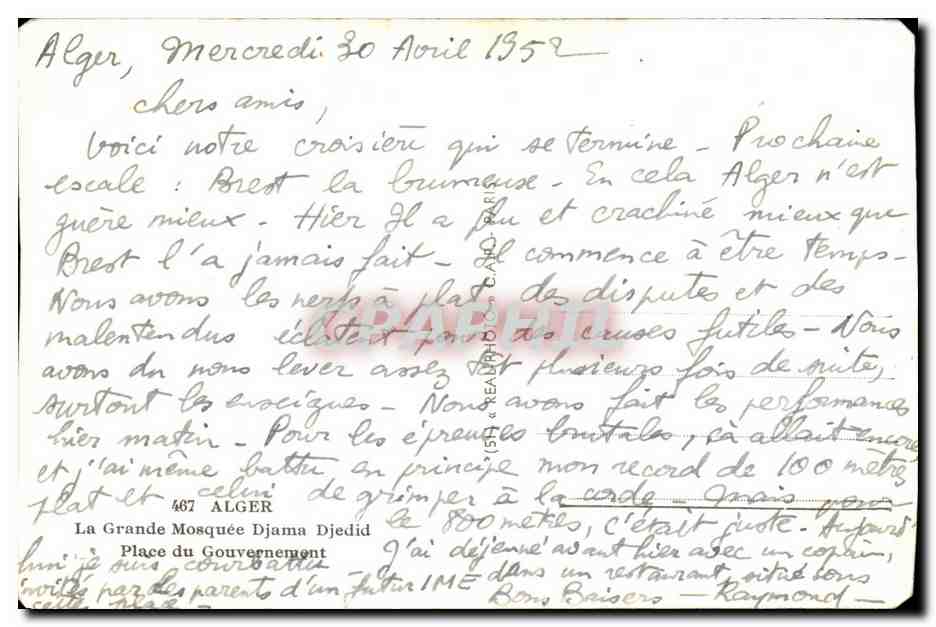 Alger, Mercredi 30 Avril 1952
chers amis,
Voici notre croisière qui se termine - Prochaine
escale : Brest la brumeuse - En cela Alger n'est
guère mieux - Hier Il a plu et crachiné mieux que
Brest l'a jamais fait - Il commence à être temps -
Nous avons les nerfs à plat, des disputes et des
malentendus éclatent pour des causes futiles - Nous
avons du nous lever assez tôt plusieurs fois de suite,
surtout les enseignes - Nous avons fait les performances
hier matin - Pour les épreuves brutales, çà allait encore
et j'ai même battu en principe mon record de 100 mètres
plat et celui de grimper à la corde - Mais pour
le 800 mètres, c'était juste - Aujourd'
hui je suis courbattu -
J'ai déjeuné avant hier avec un copain,
invités par des parents d'un futur IME dans un restaurant situé sous
cette place -
Bons Baisers - Raymond -
467 ALGER
La Grande Mosquée Djama Djedid
Place du Gouvernement
(51) « REAL-PHOTO » C.A.P. - PARIS
CPARAMA